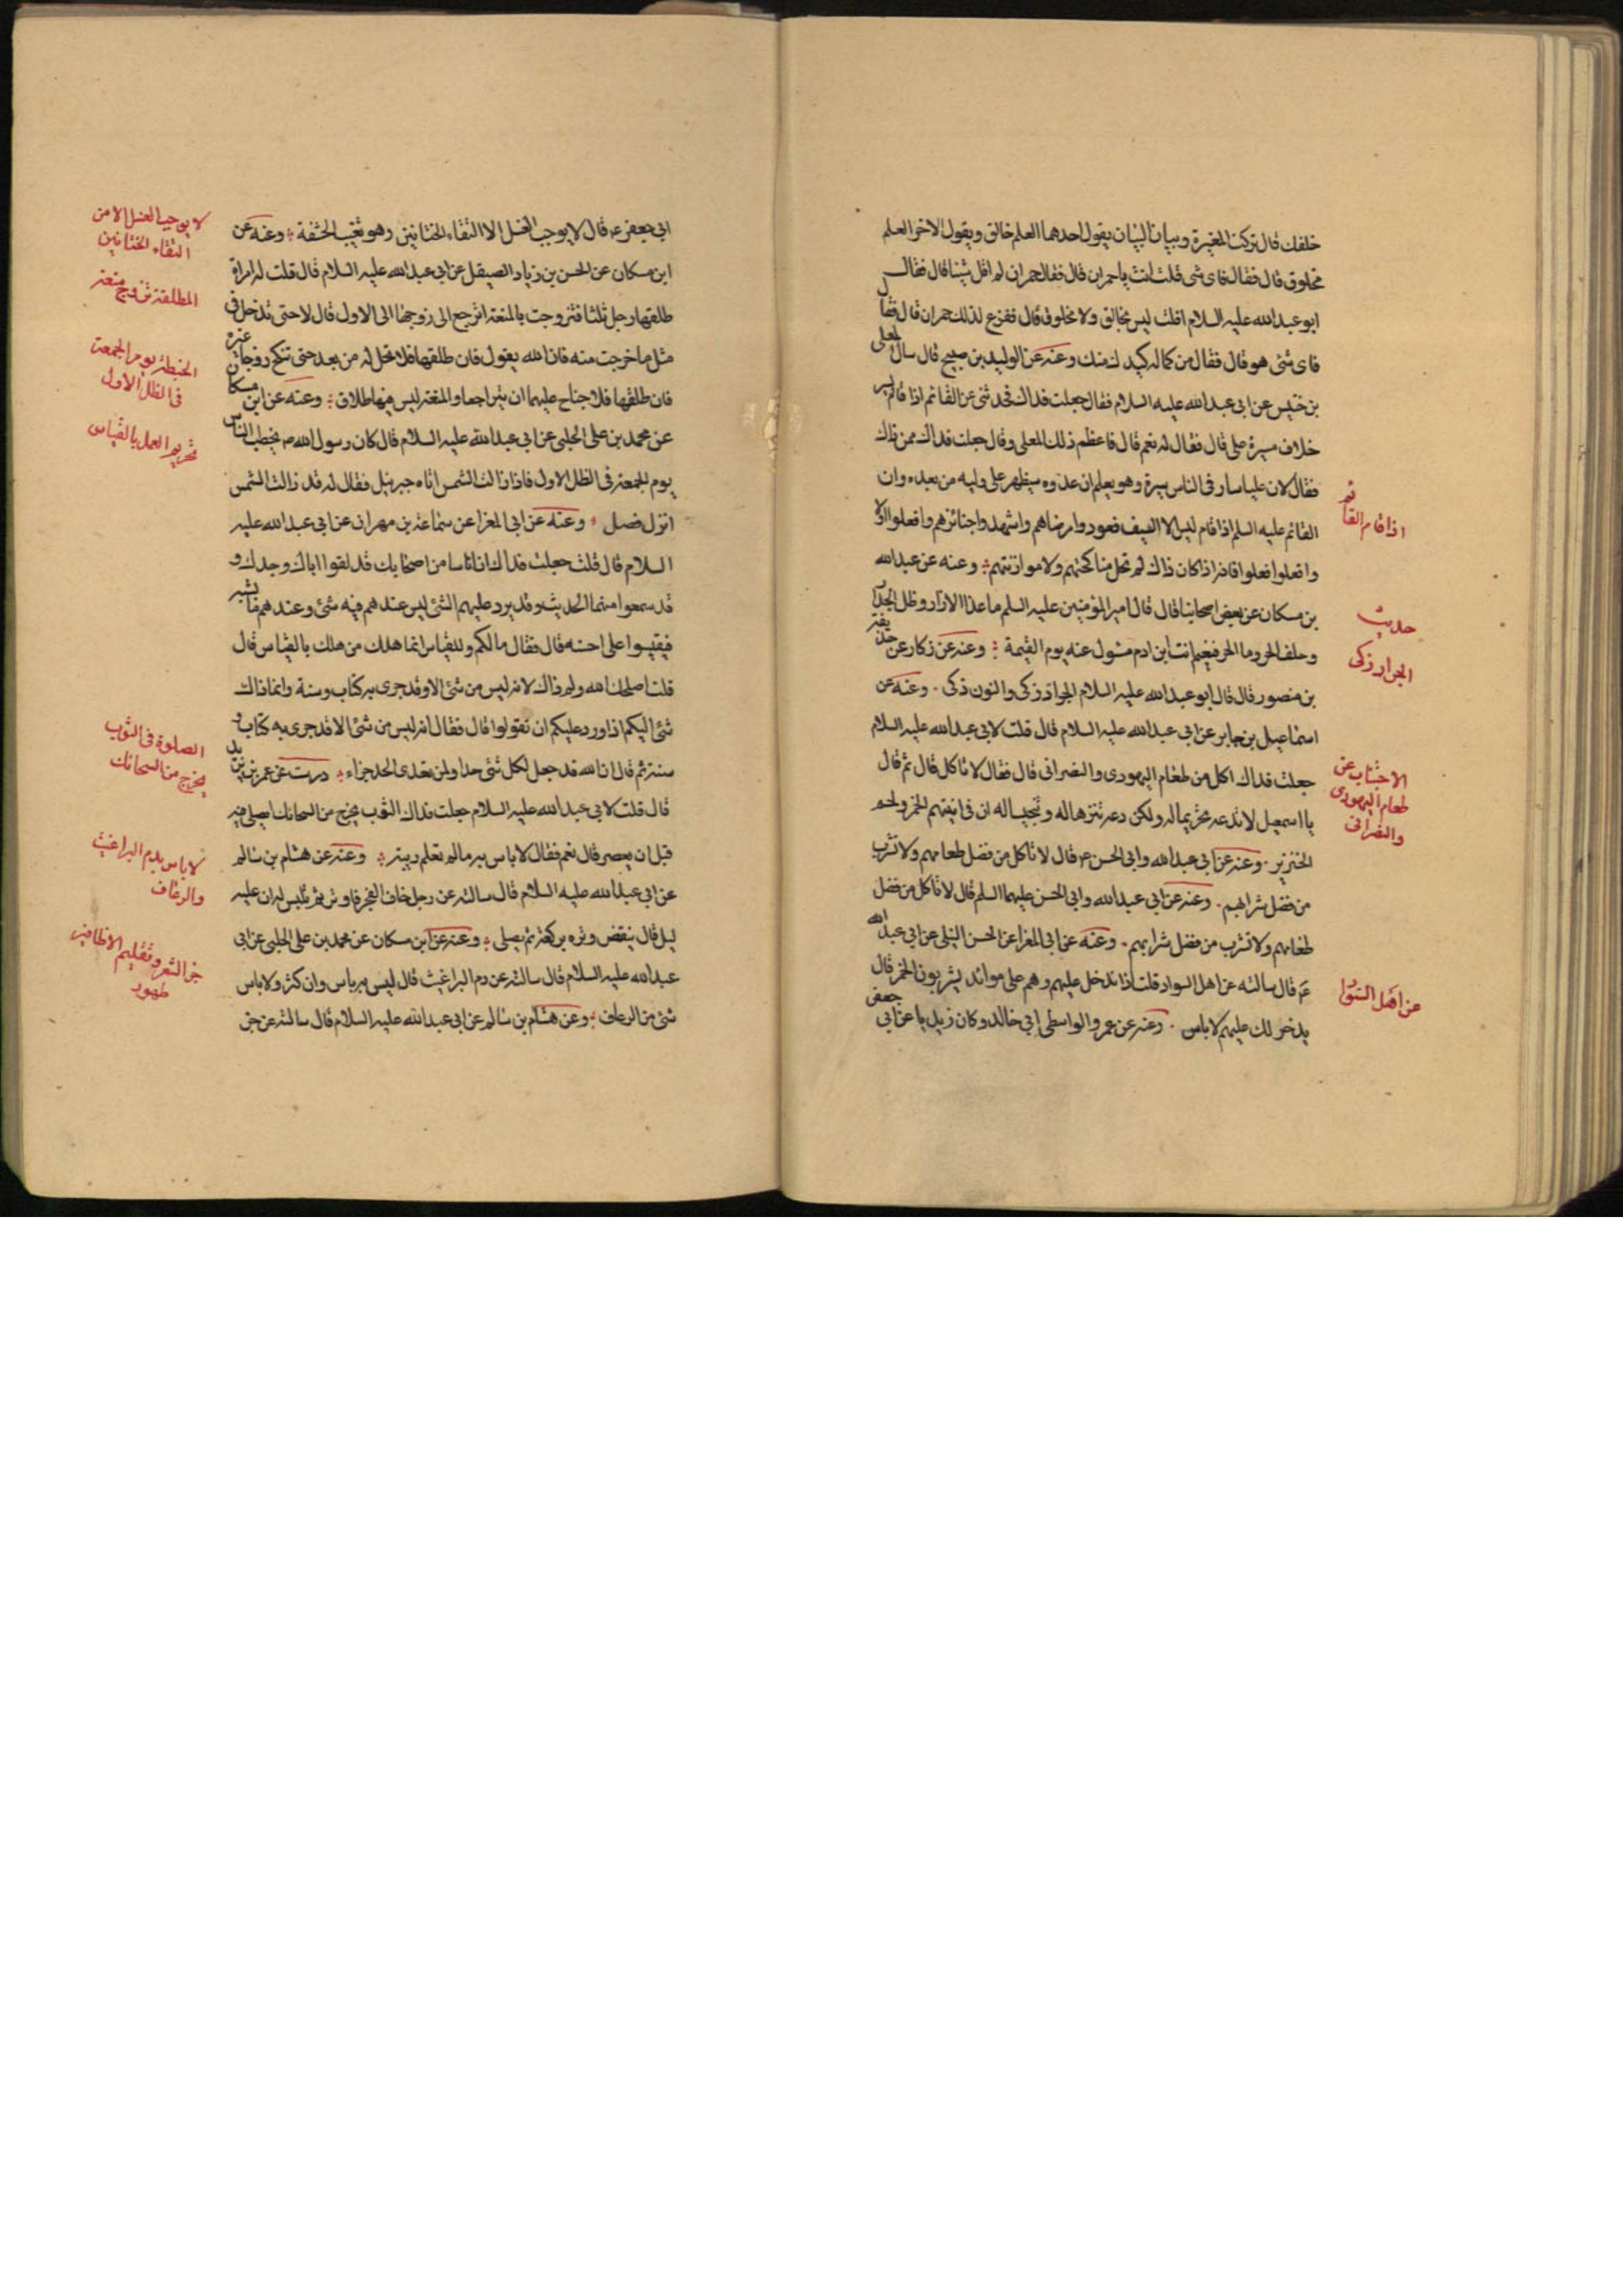 خلفك قال تركت المغيرة وبيان البيان يقول احدهما العلم خالق ويقول الاخر العلم
مخلوق قال فقال فاى شى قلت انت ياحمران قال فقال حمران لم اقل شيئا قال فقال
ابو عبدالله عليه السلام افلا قلت ليس بخالق ولا مخلوق قال ففزع لذلك حمران قال فقال
فاى شئ هو قال فقال من كماله كيدك منك وعنه عن الوليد بن صبيح قال سال المعلى
بن خنيس عن ابى عبدالله عليه السلام فقال جعلت فداك حدثنى عن القائم اذا قام يسير
خلاف سيرة على قال فقال له نعم قال فاعظم ذلك المعلى وقال جعلت فداك ممن ذاك
فقال لان عليا سار فى الناس سيرة وهو يعلم ان عدوه سيظهر على وليه من بعده وان
القائم عليه السلم اذا قام ليس الا السيف فعودوا مرضاهم واشهدوا جنائزهم وافعلوا
وافعلوا فعلوا فانه اذا كان ذاك لم تحل مناكحتهم ولا موارثتهم وعنه عن عبدالله
بن مسكان عن بعض اصحابنا قال قال امير المؤمنين عليه السلم ما عدا الازار وظل الجدار
وحلف الجر وما الحر فنعيم انت ابن ادم مسئول عنه يوم القيمة وعنه عن زكار عن حذيفة
بن منصور قال قال ابو عبدالله عليه السلام الجراد زكى والنون ذكى وعنه عن
اسماعيل بن جابر عن ابى عبدالله عليه السلام قال قلت لابى عبدالله عليه السلام
جعلت فداك اكل من طعام اليهودى والنصرانى قال فقال لا تاكل قال ثم قال
يا اسمعيل لا تدعه تحريما له ولكن دعه تنزها له وتنجسا له ان فى انيتهم الخمر ولحم
الخنزير وعنه عن ابى عبدالله وابى الحسن ع قال لا تاكل من فضل طعامهم ولا تشرب
من فضل شرابهم وعنه عن ابى عبدالله وابى الحسن عليهما السلم قال لا تاكل من فضل
طعامهم ولا تشرب من فضل شرابهم وعنه عن ابى المغرا عن الحسن النيلى عن ابى عبدالله
ع قال سالته عن اهل السواد قلت اذا ندخل عليهم وهم على موائد يشربون الخمر قال
يدخو لك عليهم لا باس وعنه عن عمرو الواسطى ابى خالد وكان زيديا عن ابى جعفر
اذا قام القائم
حديث
الجراد زكى
الاجتناب عن
طعام اليهودى
والنصرانى
عن اهل السواد
ابى جعفر ع قال لا يوجب الغسل الا التقاء الختانين وهو تغيب الحشفة وعنه عن
ابن مسكان عن الحسن بن زياد الصيقل عن ابى عبدالله عليه السلام قال قلت له امراة
طلقها رجل ثلثا فتزوجت بالمتعة اترجع الى زوجها الى الاول قال لا حتى تدخل فى
مثل ما خرجت منه فان الله يقول فان طلقها فلا تحل له من بعد حتى تنكح زوجا غيره
فان طلقها فلا جناح عليهما ان يتراجعا والمتعة ليس فيها طلاق وعنه عن ابن مسكان
عن محمد بن على الحلبى عن ابى عبدالله عليه السلام قال كان رسول الله ص يخطب الناس
يوم الجمعة فى الظل الاول فاذا زالت الشمس اتاه جبرئيل فقال له قد زالت الشمس
انزل فصل وعنه عن ابى المغرا عن سماعة بن مهران عن ابى عبدالله عليه
السلام قال قلت جعلت فداك ان اناسا من اصحابك قد لقوا اباك وجدك و
قد سمعوا منهما الحديث وقد يرد عليهم الشئ ليس عندهم فيه شئ وعندهم ما يشبه
فيقيسوا على احسنه قال فقال ما لكم وللقياس انما هلك من هلك بالقياس قال
قلت اصلحك الله ولم ذاك لانه ليس من شئ الا وقد جرى به كتاب وسنة وانما ذاك
شئ اليكم اذا ورد عليكم ان تقولوا قال فقال انه ليس من شئ الا قد جرى به كتاب و
سنة ثم قال ان الله قد جعل لكل شئ حدا ولمن تعدى الحد جزاء درست عن عمر بن يزيد
قال قلت لابى عبدالله عليه السلام جعلت فداك الثوب يخرج من الحائك ايصلى فيه
قبل ان يقصر قال نعم فقال لا باس به ما لم تعلم ريبة وعنه عن هشام بن سالم
عن ابى عبدالله عليه السلام قال سالته عن رجل خاف الفجر فاوتر ثم تلبس له ان عليه
ليل قال ينقض وتره بركعة ثم يصلى وعنه عن ابن مسكان عن محمد بن على الحلبى عن ابى
عبدالله عليه السلام قال سالته عن دم البراغيث قال ليس به باس وان كثر ولا باس
شئ من الرعاف وعن هشام بن سالم عن ابى عبدالله عليه السلام قال سالته عن جز
لا يوجب الغسل الا من
التقاء الختانين
المطلقة تزوج متعة
الخطبة يوم الجمعة
فى الظل الاول
تحريم العمل بالقياس
الصلوة فى الثوب
يخرج من الحائك
لا باس بدم البراغيث
والرعاف
جز الشعر وتقليم الاظافير
طهور